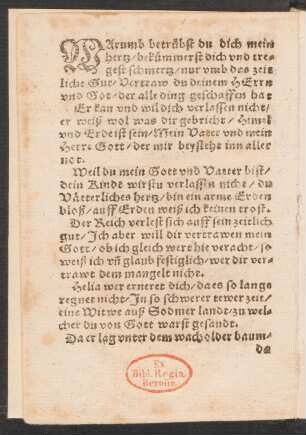 WArumb betrübst du dich mein
hertz/bekümmerst dich vnd tre-
gest schmertz/nur vmb das zeit
liche Gut/Vertraw du deinem HErrn
vnd Got/der alle ding geschaffen hat
Er kan vnd wil dich verlassen nicht/
er weiß wol was dir gebricht/Himel
vnd Erde ist sein/Mein Vater vnd mein
Herre Gott/der mir beysteht inn aller
not.
Weil du mein Gott vnd Vater bist/
dein Kindt wirstu verlassn nicht/du
Väterliches hertz/bin ein arme Erden
bloß/auff Erden weiß ich keinen trost.
Der Reich verlest sich auff sein zeitlich
gut/Ich aber will dir vertrawen mein
Gott/ob ich gleich wert hie veracht/so
weiß ich vñ glaub festiglich/wer dir ver-
trawt dem mangelt nicht.
Helia wer erneret dich/da es so lange
regnet nicht/In so schwerer tewer zeit/
eine Witwe auß Sodmer landt/zu wel-
cher du von Gott warst gesandt.
Da er lag vnter dem wacholder baum-
da
Ex
Bibl. Regia
Berolin.